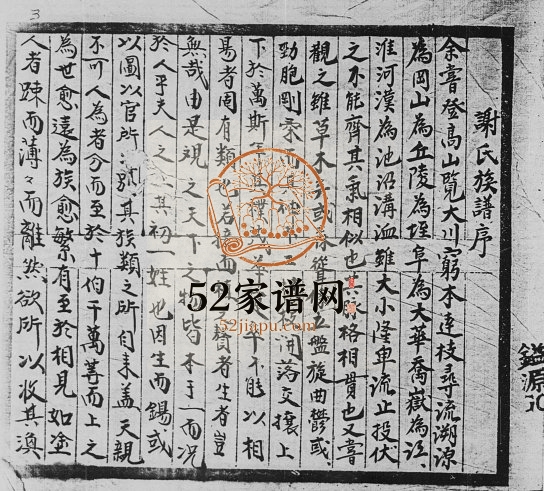 謝氏族譜序
余嘗登高山覽大川窮本達枝尋流溯源
為岡山為丘陵為垤阜為大華喬嶽為江、
淮河漢為池沼溝洫雖大小隆卑流止投伏
之不能齊其氣相似也其脉格相貫也又嘗
觀之雖草木 或 盤旋曲鬱或、
勁胞剛柔而 開落交攘上
下於萬斯年 華 不能以相
易者固有類也 生者豈
無哉由是觀之天下之物皆本于一而况
於人乎夫人之生其初一姓也因生而錫或
以圖以官所 號其族類之所自来蓋天親
不可人為者分而至於十伯千萬等而上之
為世愈遠為族愈繁有至於相見如塗
人者踈而薄々而離然欲所以收其渙
鎰源記
3
52家谱网
52jiapu.com